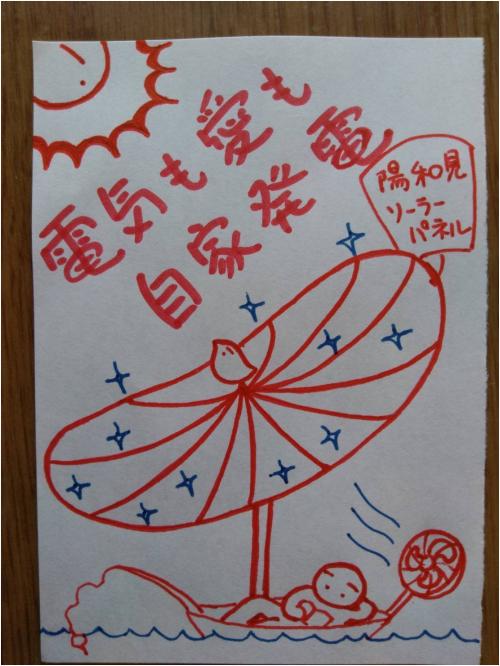 電気も愛も
自家発電
陽和見
ソーラー
パネル